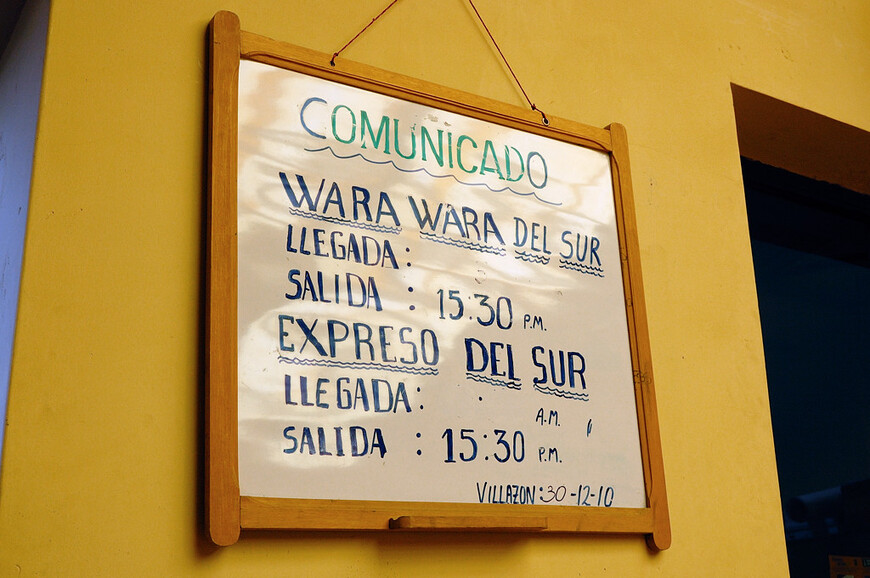 COMUNICADO
WARA WARA DEL SUR
LLEGADA:
SALIDA : 15:30 P.M.
EXPRESO DEL SUR
LLEGADA: . A.M.
SALIDA : 15:30 P.M.
VILLAZON: 30-12-10